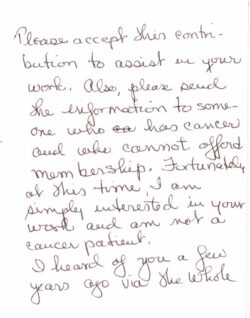 Please accept this contri-
bution to assist in your
work. Also, please send
the information to some-
one who has cancer
and who cannot afford
membership. Fortunately,
at this time, I am
simply interested in your
work and am not a
cancer patient.
I heard of you a few
years ago via the Whole